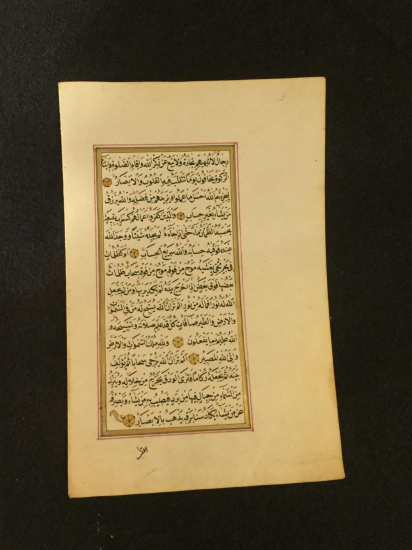 رجال لا تلهيهم تجارة ولا بيع عن ذكر الله واقام الصلوة وايتاء
الزكوة يخافون يوما تتقلب فيه القلوب والابصار
ليجزيهم الله احسن ما عملوا ويزيدهم من فضله والله يرزق
من يشاء بغير حساب والذين كفروا اعمالهم كسراب بقيعة
يحسبه الظمان ماء حتى اذا جاءه لم يجده شيئا ووجد الله
عنده فوفيه حسابه والله سريع الحساب او كظلمات
في بحر لجي يغشيه موج من فوقه موج من فوقه سحاب ظلمات
بعضها فوق بعض اذا اخرج يده لم يكد يريها ومن لم يجعل
الله له نورا فما له من نور الم تر ان الله يسبح له من في السموات
والارض والطير صافات كل قد علم صلاته وتسبيحه و
الله عليم بما يفعلون ولله ملك السموات والارض
والى الله المصير الم تر ان الله يزجي سحابا ثم يؤلف
بينه ثم يجعله ركاما فترى الودق يخرج من خلاله وينزل
من السماء من جبال فيها من برد فيصيب به من يشاء ويصرفه
عن من يشاء يكاد سنا برقه يذهب بالابصار